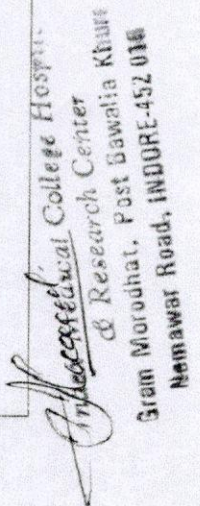 Medical College Hospit
& Research Center
Gram Morodhat, Post Sawalia Khurd
Nemawar Road, INDORE-452 016